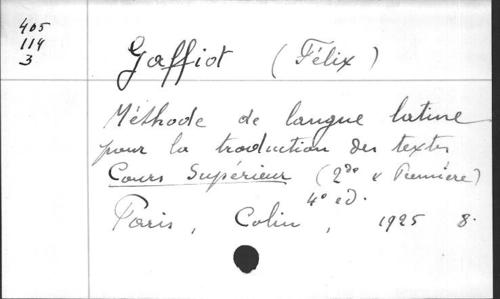 405
114
3
Gaffiot (Félix)
Méthode de langue latine
pour la traduction des textes
Cours Supérieur (2de & Première)
4e éd.
Paris, Colin, 1925 8.